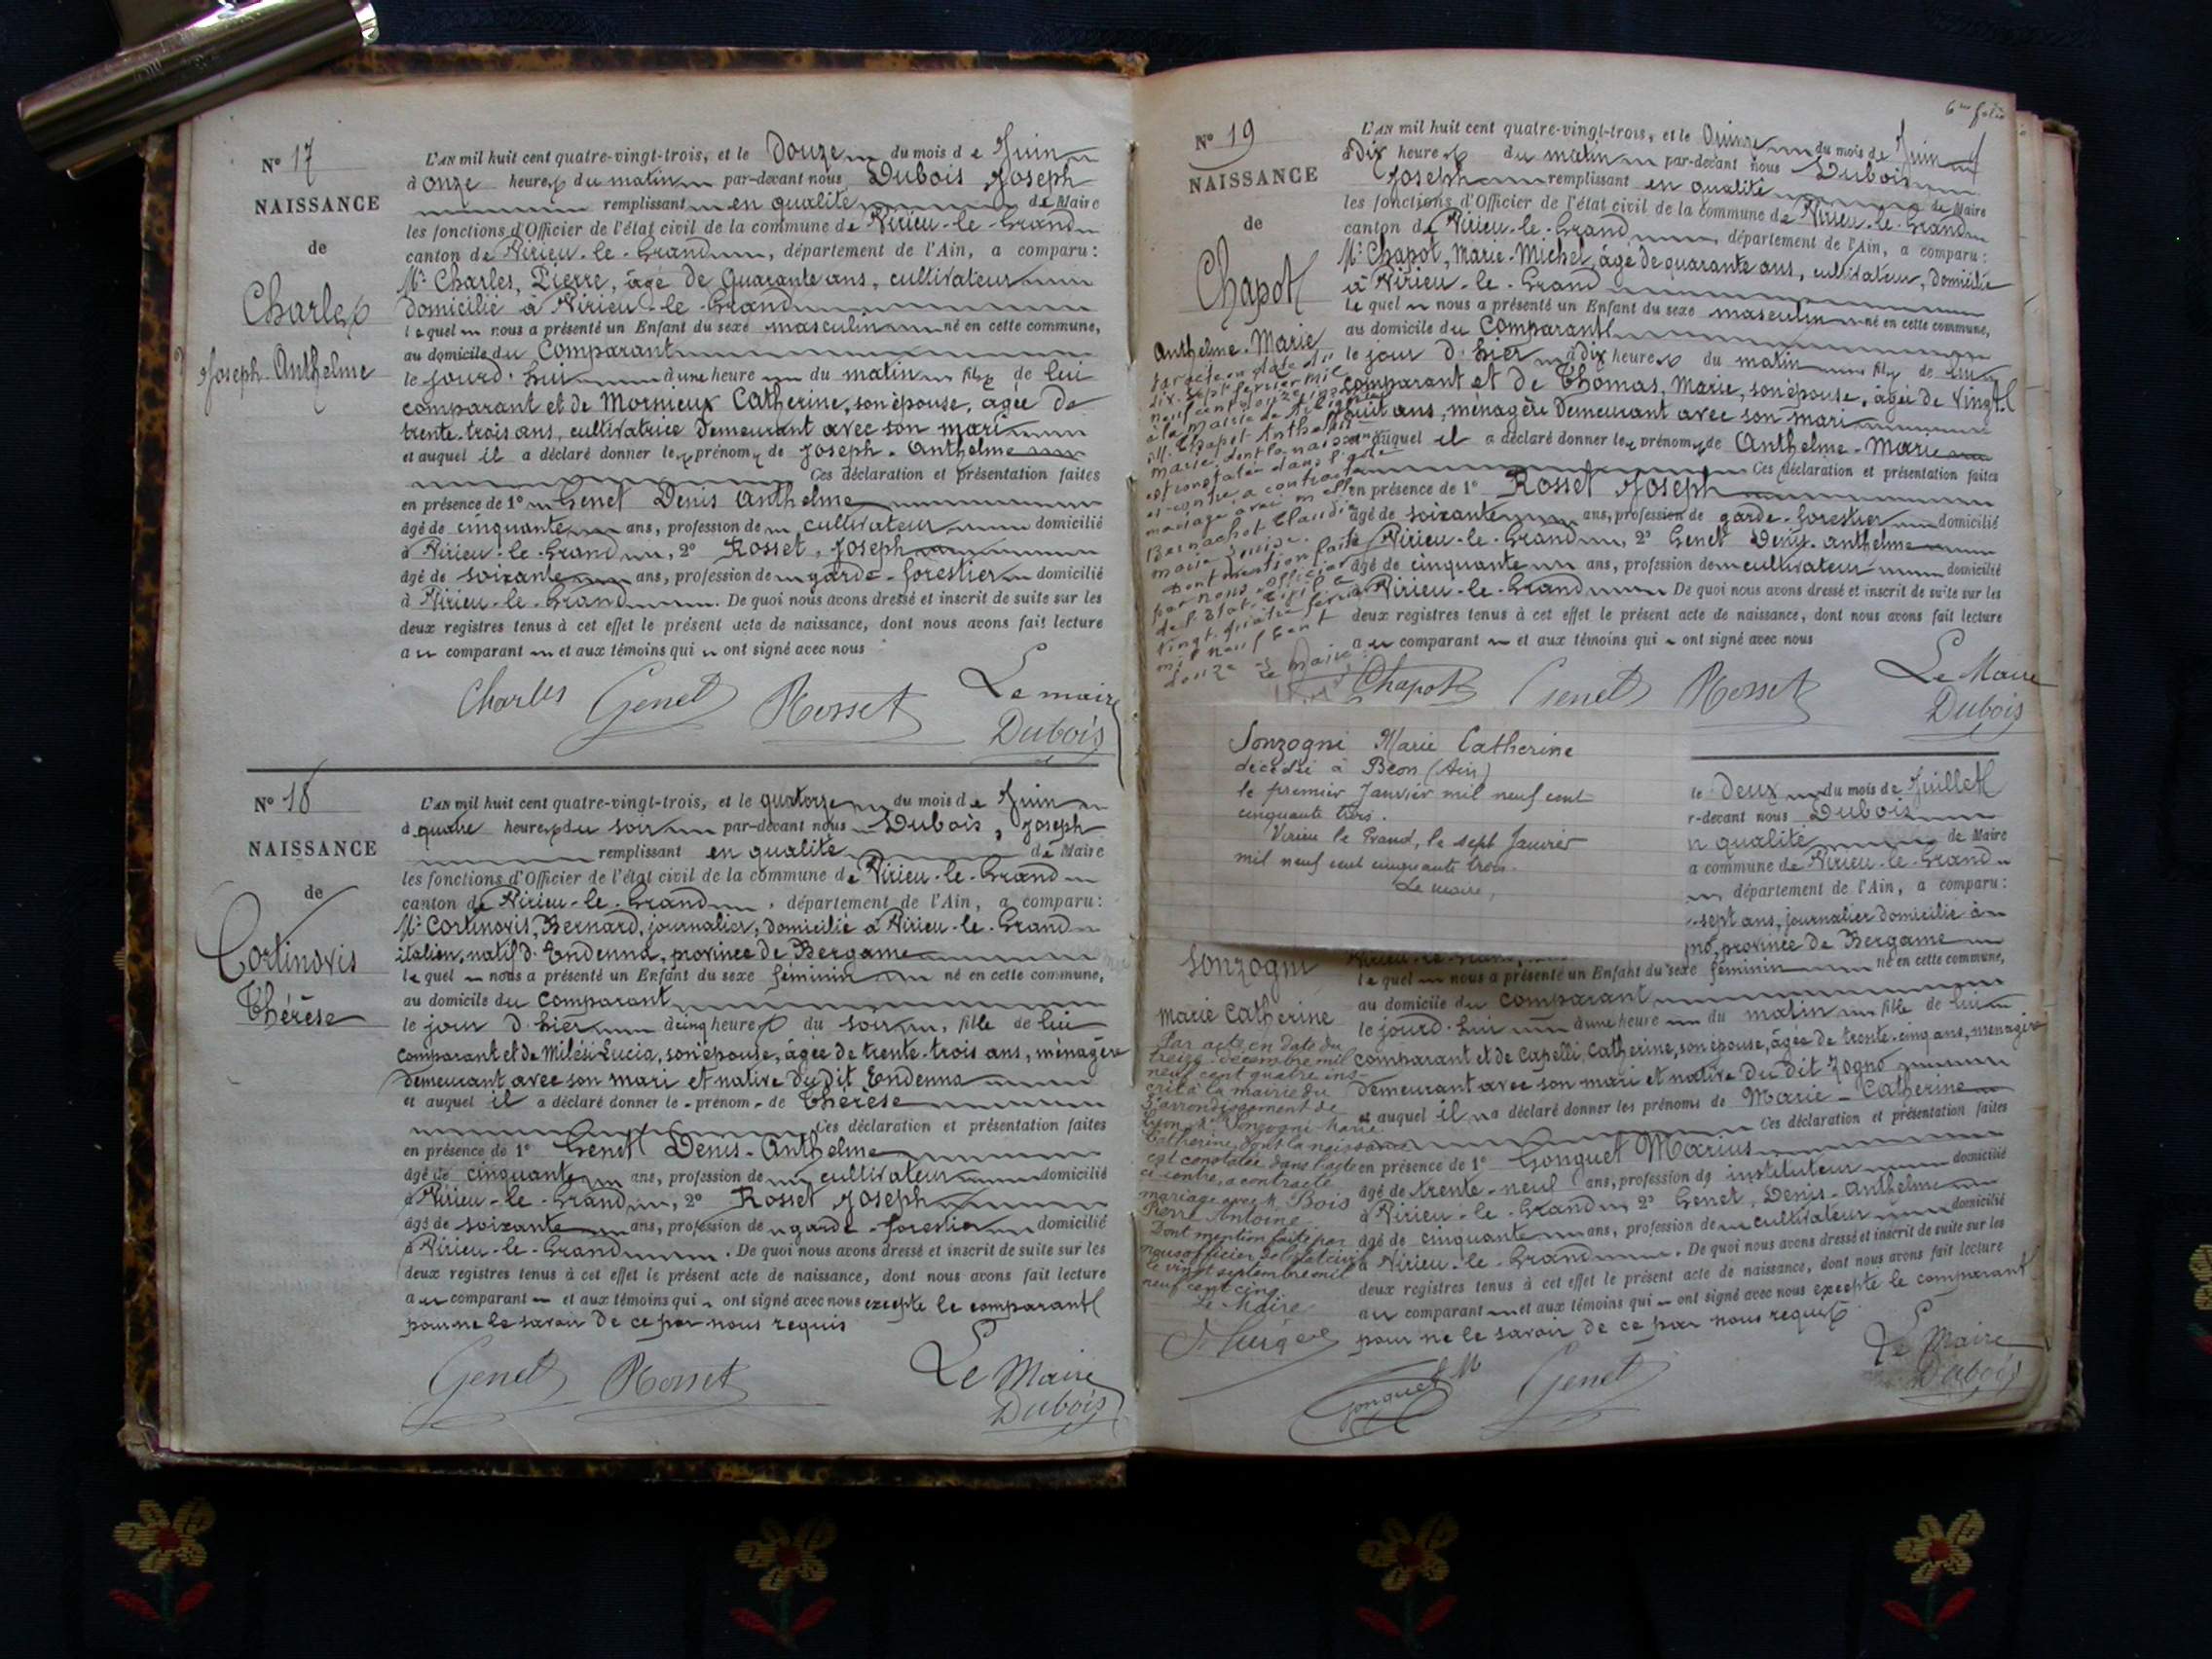 N° 17
NAISSANCE
de
Charles
Joseph Anthelme
L'AN mil huit cent quatre-vingt-trois, et le Douze du mois de Juin
à onze heures du matin par-devant nous Dubois Joseph
remplissant en qualité de Maire
les fonctions d'Officier de l'état civil de la commune de Virieu-le-Grand
canton de Virieu-le-Grand, département de l'Ain, a comparu:
Mr Charles, Pierre, âgé de Quarante ans, cultivateur
domicilié à Virieu-le-Grand
lequel nous a présenté un Enfant du sexe masculin né en cette commune,
au domicile du Comparant
le jourd'hui à une heure du matin fils de lui
comparant et de Mornieux Catherine, son épouse, agée de
trente-trois ans, cultivatrice demeurant avec son mari
et auquel il a déclaré donner les prénoms de Joseph-Anthelme
Ces déclaration et présentation faites
en présence de 1° Genet Denis Anthelme
âgé de cinquante ans, profession de cultivateur domicilié
à Virieu-le-Grand, 2° Rosset, Joseph
âgé de soixante ans, profession de garde-forestier domicilié
à Virieu-le-Grand. De quoi nous avons dressé et inscrit de suite sur les
deux registres tenus à cet effet le présent acte de naissance, dont nous avons fait lecture
au comparant et aux témoins qui ont signé avec nous
Charles Genet Rosset Le maire
Dubois
N° 18
NAISSANCE
de
Cortinovis
Thérèse
L'AN mil huit cent quatre-vingt-trois, et le quatorze du mois de Juin
à quatre heures du soir par-devant nous Dubois, Joseph
remplissant en qualité de Maire
les fonctions d'Officier de l'état civil de la commune de Virieu-le-Grand
canton de Virieu-le-Grand, département de l'Ain, a comparu:
Mr Cortinovis, Bernard, journalier, domicilié à Virieu-le-Grand
italien, natif d'Endenna, province de Bergame
lequel nous a présenté un Enfant du sexe féminin né en cette commune,
au domicile du Comparant
le jour d'hier à cinq heures du soir, fille de lui
comparant et de Milési Lucia, son épouse, âgée de trente-trois ans, ménagère
demeurant avec son mari et native du dit Endenna
et auquel il a déclaré donner le prénom de Thérèse
Ces déclaration et présentation faites
en présence de 1° Genet Denis-Anthelme
âgé de cinquante ans, profession de cultivateur domicilié
à Virieu-le-Grand, 2° Rosset Joseph
âgé de soixante ans, profession de garde-forestier domicilié
à Virieu-le-Grand. De quoi nous avons dressé et inscrit de suite sur les
deux registres tenus à cet effet le présent acte de naissance, dont nous avons fait lecture
au comparant et aux témoins qui ont signé avec nous excepté le comparant
pour ne le savoir de ce par nous requis
Genet Rosset Le Maire
Dubois
6me folio
N° 19
NAISSANCE
de
Chapot
Anthelme-Marie
par acte en date du
dix-sept février mil
neuf cent douze
à la mairie de
M. Chapot Anthelme
Marie dont la naissance
est constatée dans l'acte
ci-contre, a contracté
mariage avec Melle
Bernachot Claudia
Marie Louise.
Dont mention faite
par nous, officier
de l'Etat-civil le
vingt-quatre février
mil neuf cent
douze
Le Maire
L'AN mil huit cent quatre-vingt-trois, et le Quinze du mois de Juin
à Dix heures du matin par-devant nous Dubois
Joseph remplissant en qualité de Maire
les fonctions d'Officier de l'état civil de la commune de Virieu-le-Grand
canton de Virieu-le-Grand, département de l'Ain, a comparu:
Mr Chapot, Marie-Michel, âgé de quarante ans, cultivateur, domicilié
à Virieu-le-Grand
lequel nous a présenté un Enfant du sexe masculin né en cette commune,
au domicile du Comparant
le jour d'hier à dix heures du matin fils de lui
comparant et de Thomas, Marie, son épouse, âgée de vingt
huit ans, ménagère demeurant avec son mari
et auquel il a déclaré donner les prénoms de Anthelme-Marie
Ces déclaration et présentation faites
en présence de 1° Rosset Joseph
âgé de soixante ans, profession de garde-forestier domicilié
à Virieu-le-Grand, 2° Genet Denis-Anthelme
âgé de cinquante ans, profession de cultivateur domicilié
à Virieu-le-Grand De quoi nous avons dressé et inscrit de suite sur les
deux registres tenus à cet effet le présent acte de naissance, dont nous avons fait lecture
au comparant et aux témoins qui ont signé avec nous
Chapot Genet Rosset Le Maire
Dubois
Sonzogni Marie Catherine
décédée à Béon (Ain)
le premier Janvier mil neuf cent
cinquante trois.
Virieu le Grand, le sept Janvier
mil neuf cent cinquante trois.
Le maire,
le Deux du mois de Juillet
r-devant nous Dubois
n qualité de Maire
a commune de Virieu-le-Grand
département de l'Ain, a comparu:
-sept ans, journalier domicilié à
no, province de Bergame
Sonzogni
Marie Catherine
Par acte en date du
treize décembre mil
neuf cent quatre ins-
crit à la mairie du
arrondissement de
Lyon, Sonzogni Marie
Catherine, dont la naissance
est constatée dans l'acte
ci-contre, a contracté
mariage avec M. Bois
Pierre Antoine
Dont mention faite par
nous officier de l'état civil
le vingt septembre mil
neuf cent cinq
Le Maire
lequel nous a présenté un Enfant du sexe féminin né en cette commune,
au domicile du Comparant
le jourd'hui à une heure du matin fille de lui
comparant et de Capelli, Catherine, son épouse, âgée de trente-cinq ans, ménagère
demeurant avec son mari et native du dit Zogno
et auquel il a déclaré donner les prénoms de Marie-Catherine
Ces déclaration et présentation faites
en présence de 1° Gonguet Marius
âgé de trente-neuf ans, profession de instituteur domicilié
à Virieu-le-Grand 2° Genet, Denis-Anthelme
âgé de cinquante ans, profession de cultivateur domicilié
à Virieu-le-Grand. De quoi nous avons dressé et inscrit de suite sur les
deux registres tenus à cet effet le présent acte de naissance, dont nous avons fait lecture
au comparant et aux témoins qui ont signé avec nous excepté le comparant
pour ne le savoir de ce par nous requis
Gonguet M Genet Le Maire
Dubois